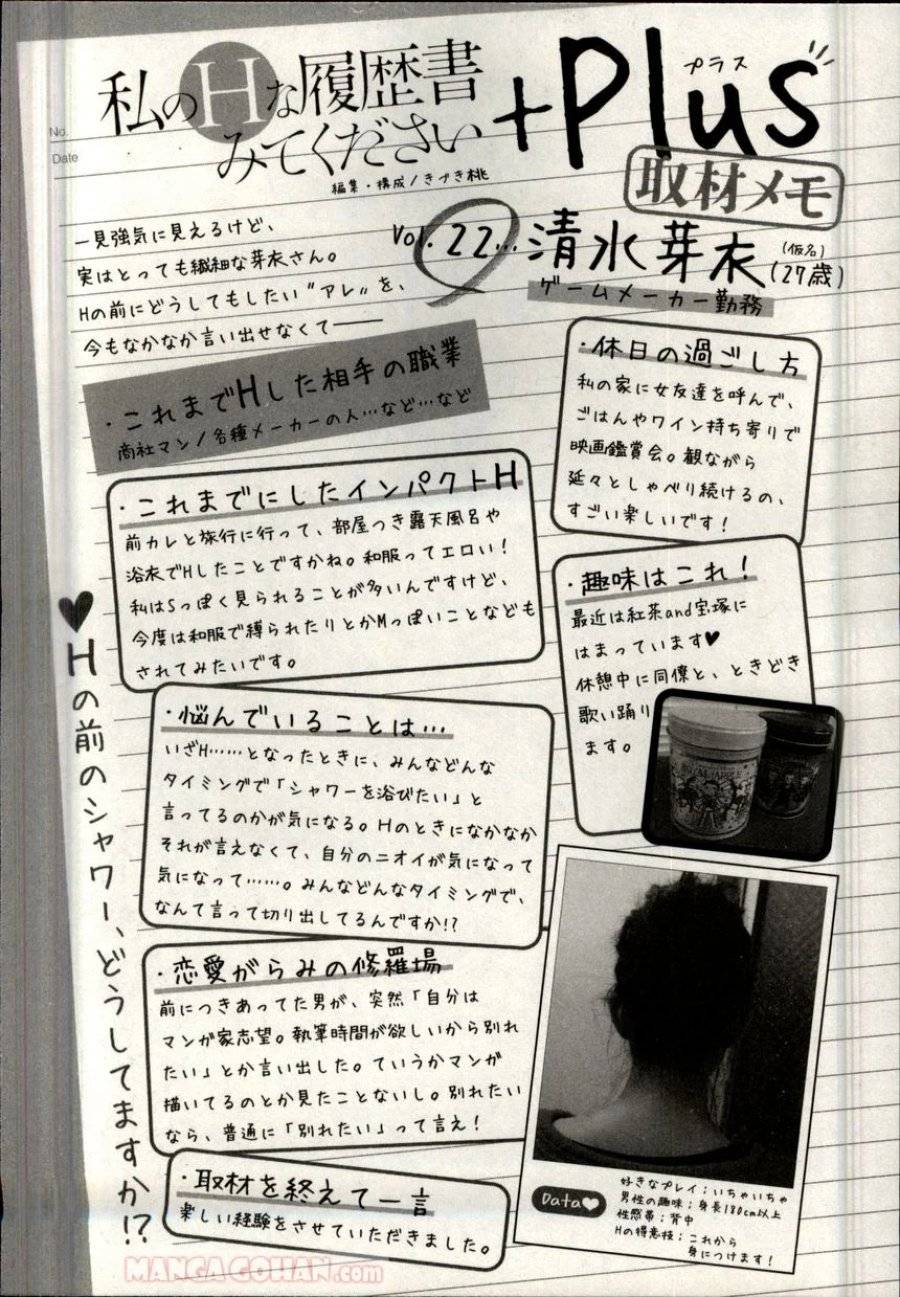 No.
Date
私のHな履歴書
みてください
+Plus
プラス
編集・構成/きづき桃
取材メモ
Vol.22… 清水芽衣
(仮名)
(27歳)
ゲームメーカー勤務
一見強気に見えるけど、
実はとっても繊細な芽衣さん。
Hの前にどうしてもしたい"アレ"を、
今もなかなか言い出せなくて――
・これまでHした相手の職業
商社マン/各種メーカーの人…など…など
・これまでにしたインパクトH
前カレと旅行に行って、部屋つき露天風呂や
浴衣でHしたことですかね。和服ってエロい!
私はSっぽく見られることが多いんですけど、
今度は和服で縛られたりとかMっぽいことなども
されてみたいです。
・悩んでいることは…
いざH……となったときに、みんなどんな
タイミングで「シャワーを浴びたい」と
言ってるのかが気になる。Hのときになかなか
それが言えなくて、自分のニオイが気になって
気になって……。みんなどんなタイミングで、
なんて言って切り出してるんですか!?
・恋愛がらみの修羅場
前につきあってた男が、突然「自分は
マンガ家志望。執筆時間が欲しいから別れ
たい」とか言い出した。ていうかマンガ
描いてるのとか見たことないし。別れたい
なら、普通に「別れたい」って言え!
・取材を終えて一言
楽しい経験をさせていただきました。
・休日の過ごし方
私の家に女友達を呼んで、
ごはんやワイン持ち寄りで
映画鑑賞会。観ながら
延々としゃべり続けるの、
すごい楽しいです!
・趣味はこれ!
最近は紅茶and宝塚に
はまっています♥
休憩中に同僚と、ときどき
歌い踊り
ます。
Data♥
好きなプレイ:いちゃいちゃ
男性の趣味:身長180cm以上
性感帯:背中
Hの得意技:これから
身につけます!
♥Hの前のシャワー、どうしてますか!?
MANGAGOHAN.com